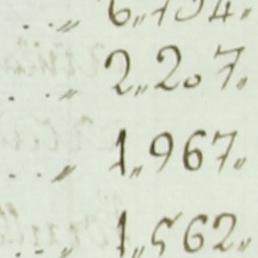 . . „ 6„134„
. . „ 2„207„
. . „ 1„967„
. . „ 1„562„